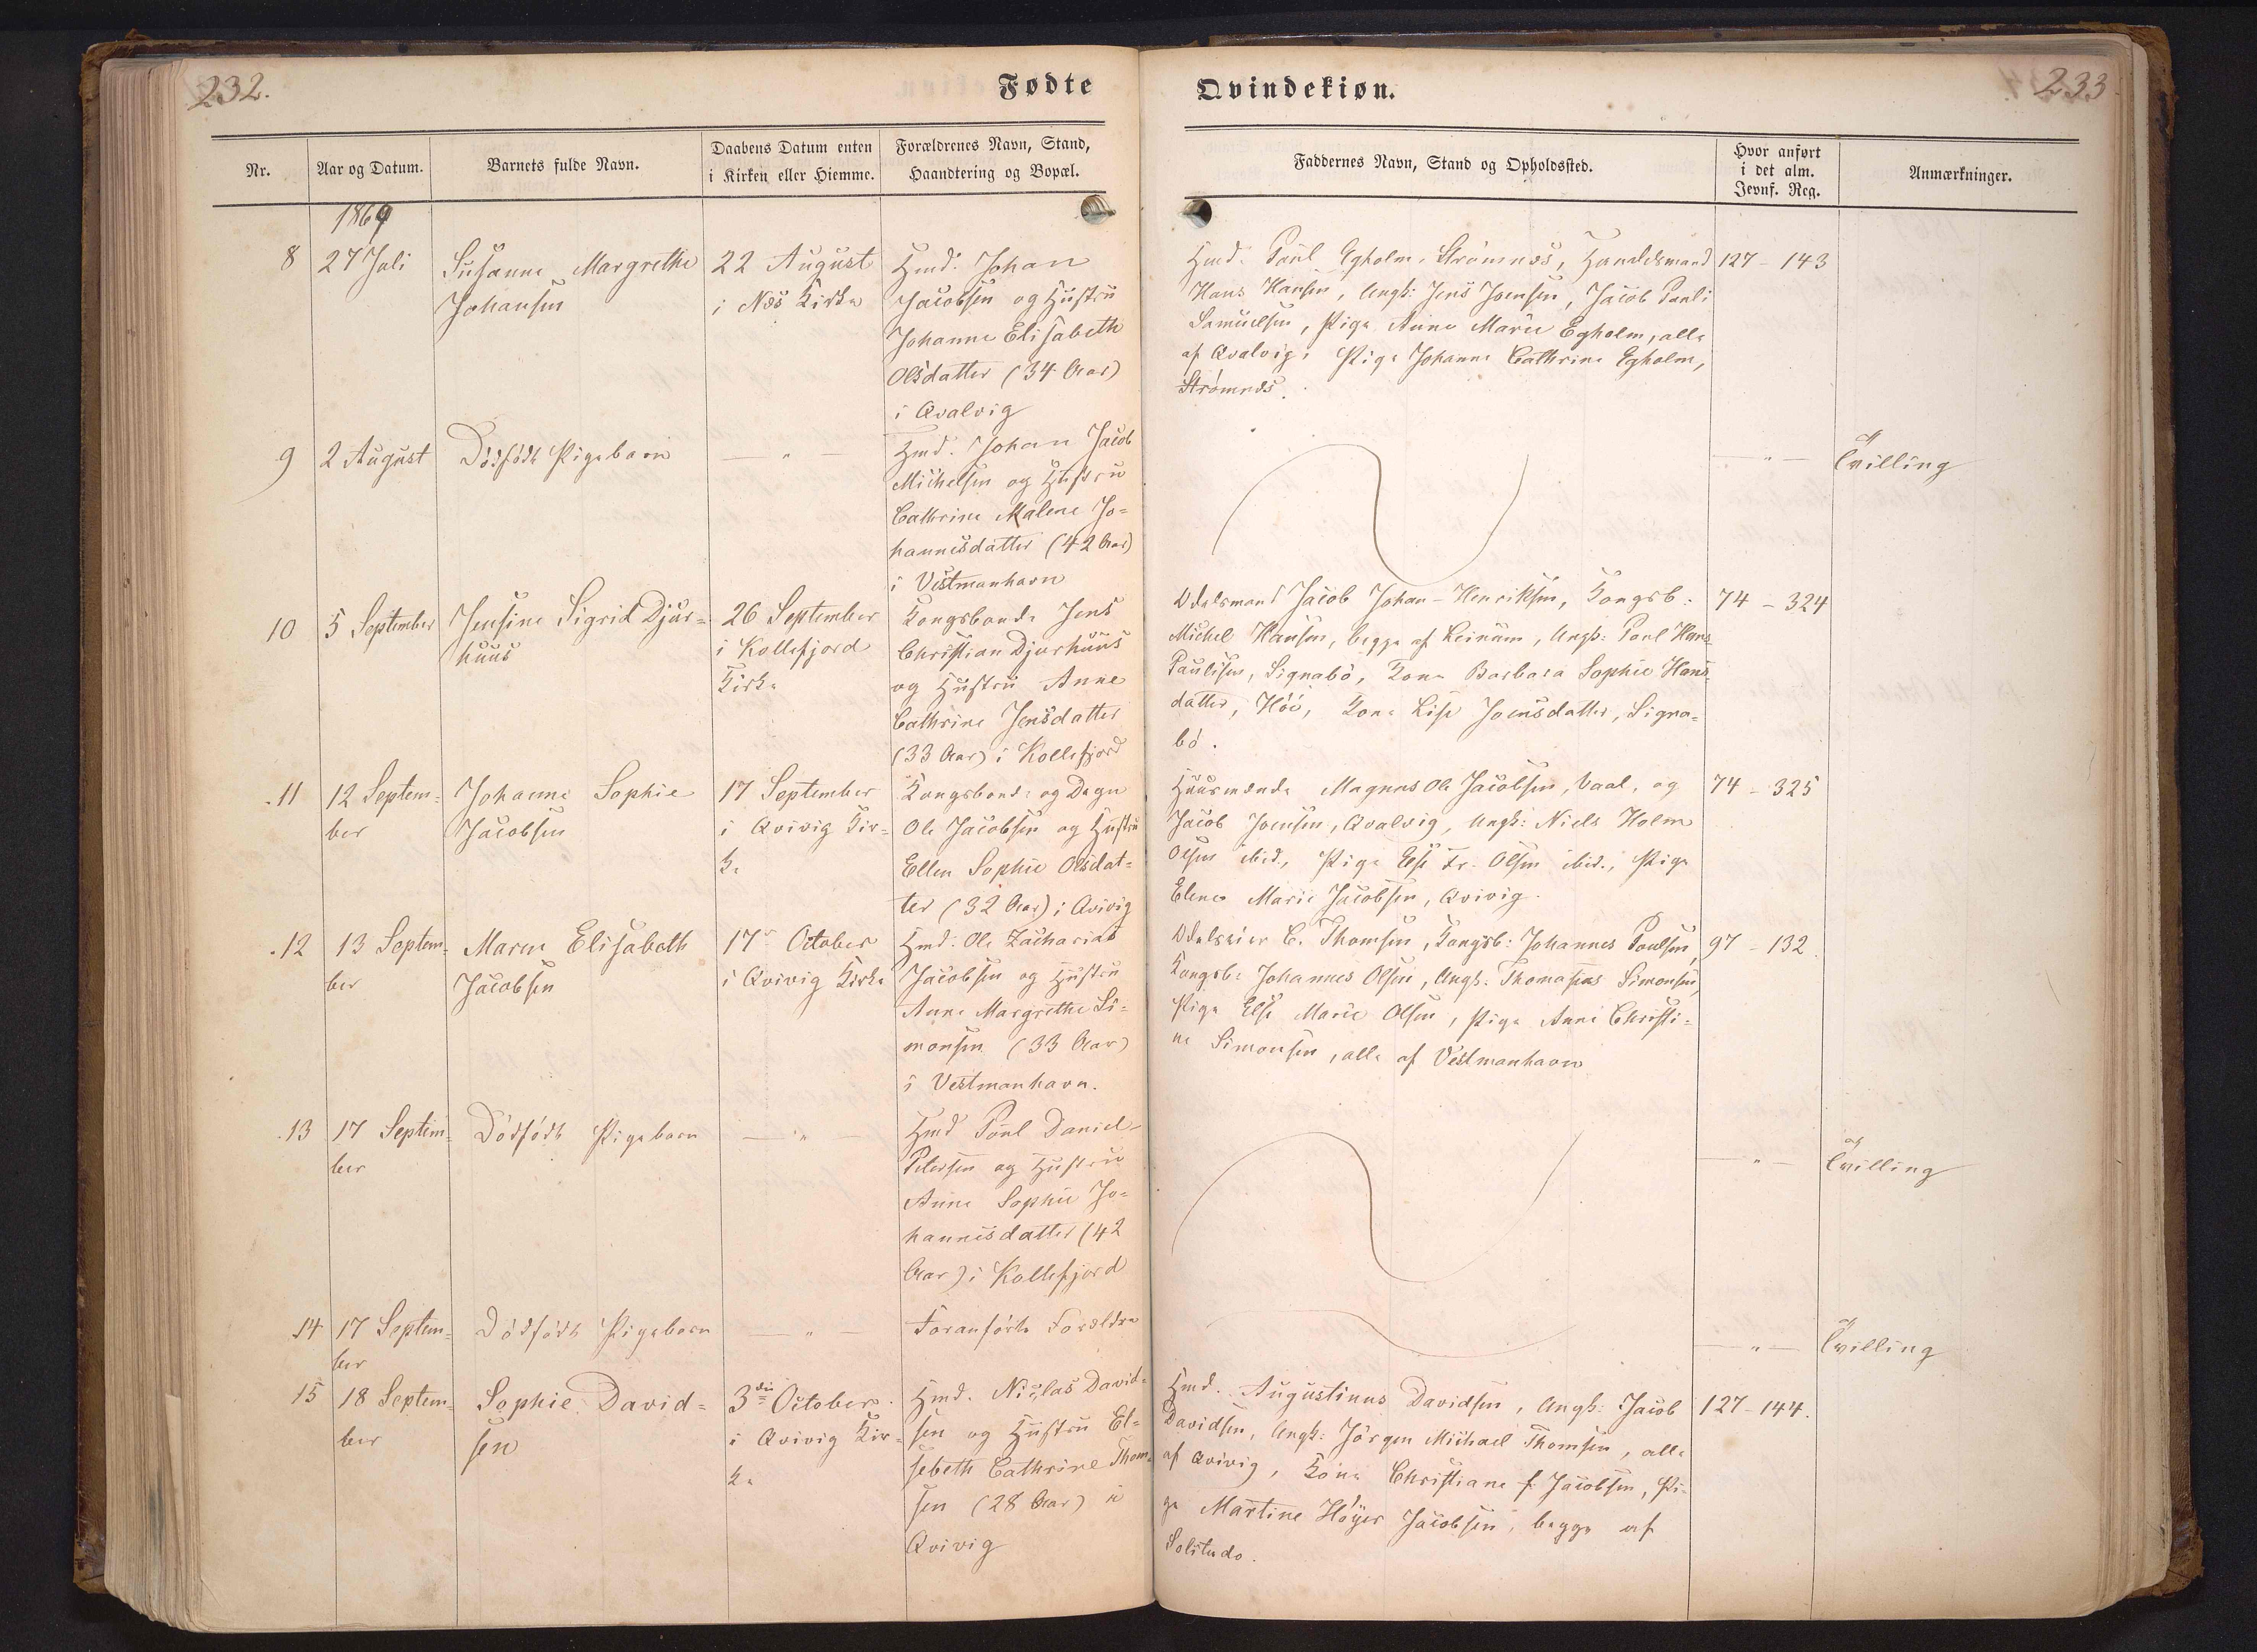 232.
Fødte
Nr.
Aar og Datum.
Barnets fulde Navn.
Daabens Datum enten
i Kirken eller Hiemme.
Forældrenes Navn, Stand,
Haandtering og Bopæl.
1869
8
27 Juli
Susanne Margrethe
Johansen
22 August
i Næs Kirke
Hmd. Johan
Jacobsen og Hustru
Johanne Elisabeth
Olsdatter (34 Aar)
i Qvalvig
9
2 August
Dödfödt Pigebarn
— " —
Hmd. Johan Jacob
Michelsen og Hustru
Cathrine Malene Jo=
hannesdatter (42 Aar)
i Vestmanhavn
10
5 September
Jensine Sigrid Djur=
huus
26 September
i Kollefjord
Kirke
Kongsbonde Jens
Christian Djurhuus
og Hustru Anne
Cathrine Jensdatter
(33 Aar) i Kollefjord
11
12 Septem=
ber
Johanne Sophie
Jacobsen
17 September
i Qvivig Kir=
ke
Kongsbonde og Degn
Ole Jacobsen og Hustru
Ellen Sophie Olsdat=
ter (32 Aar) i Qvivig
12
13 Septem=
ber
Maren Elisabeth
Jacobsen
17 October
i Qvivig Kirke
Hmd. Ole Zacharias
Jacobsen og Hustru
Anne Margrethe Si=
monsen (33 Aar)
i Vestmanhavn.
13
17 Septem=
ber
Dödfödt Pigebarn
— " —
Hmd Poul Daniel
Petersen og Hustru
Anne Sophie Jo=
hannesdatter (42
Aar) i Kollefjord
14
17 Septem=
ber
Dödfödt Pigebarn
— " —
Foranförte Forældre
15
18 Septem=
ber
Sophie David=
sen
3die October
i Qvivig Kir=
ke
Hmd. Niclas David=
sen og Hustru El=
sebeth Cathrine Thom=
sen (28 Aar) i
Qvivig
Qvindekiøn.
233
Faddernes Navn, Stand og Opholdssted.
Hvor anført
i det alm.
Jevnf. Reg.
Anmærkninger.
Hmd. Poul Egholm, Strömnæs, Handelsmand
Hans Hansen, Ungk: Jens Joensen, Jacob Pauli
Samuelsen, Pige Anne Marie Egholm, alle
af Qvalvig, Pige Johanne Cathrine Egholm,
Strömnæs.
127 - 143
— " —
Tvilling
Odelsmand Jacob Johan Henriksen, Kongsb:
Michel Hansen, begge af Leinum, Ungk: Poul Hans
Paulisen, Signabö, Kone Barbara Sophie Hans=
datter, Kone Lise Joensdatter, Signa=
bö.
74 - 324
Huusmænde Magnus Ole Jacobsen, Vaal, og
Jacob Joensen, Qvalvig, Ungk: Niels Holm
Olsen ibid., Pige Else Fr. Olsen ibid., Pige
Elene Marie Jacobsen, Qvivig.
74 - 325
Odelseier C. Thomsen, Kongsb: Johannes Poulsen,
Kongsb: Johannes Olsen, Ungk: Thomasius Simonsen,
Pige Else Marie Olsen, Pige Anne Christi=
ne Simonsen, alle af Vestmanhavn
97 - 132.
— " —
Tvilling
— " —
Tvilling
Hmd. Augustinus Davidsen, Ungk: Jacob
Davidsen, Ungk: Jörgen Michael Thomsen, alle
af Qvivig, Kone Christiane f. Jacobsen, Pi=
ge Martine Höyer Jacobsen, begge af
Solitude.
127 - 144.